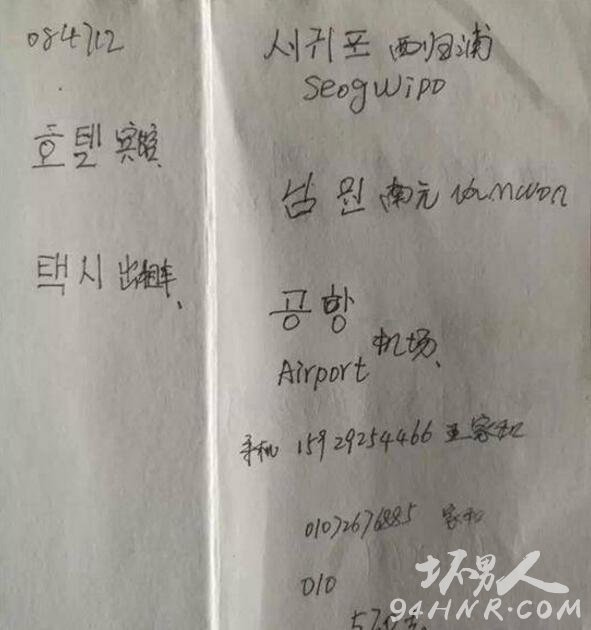 084712
호텔 宾馆
택시 出租车
서귀포 西归浦
Seogwipo
남원 南元 Namwon
공항
Airport 机场
手机 15929254466 王家和
01072676885 家和
010
坏男人
94HNR.COM